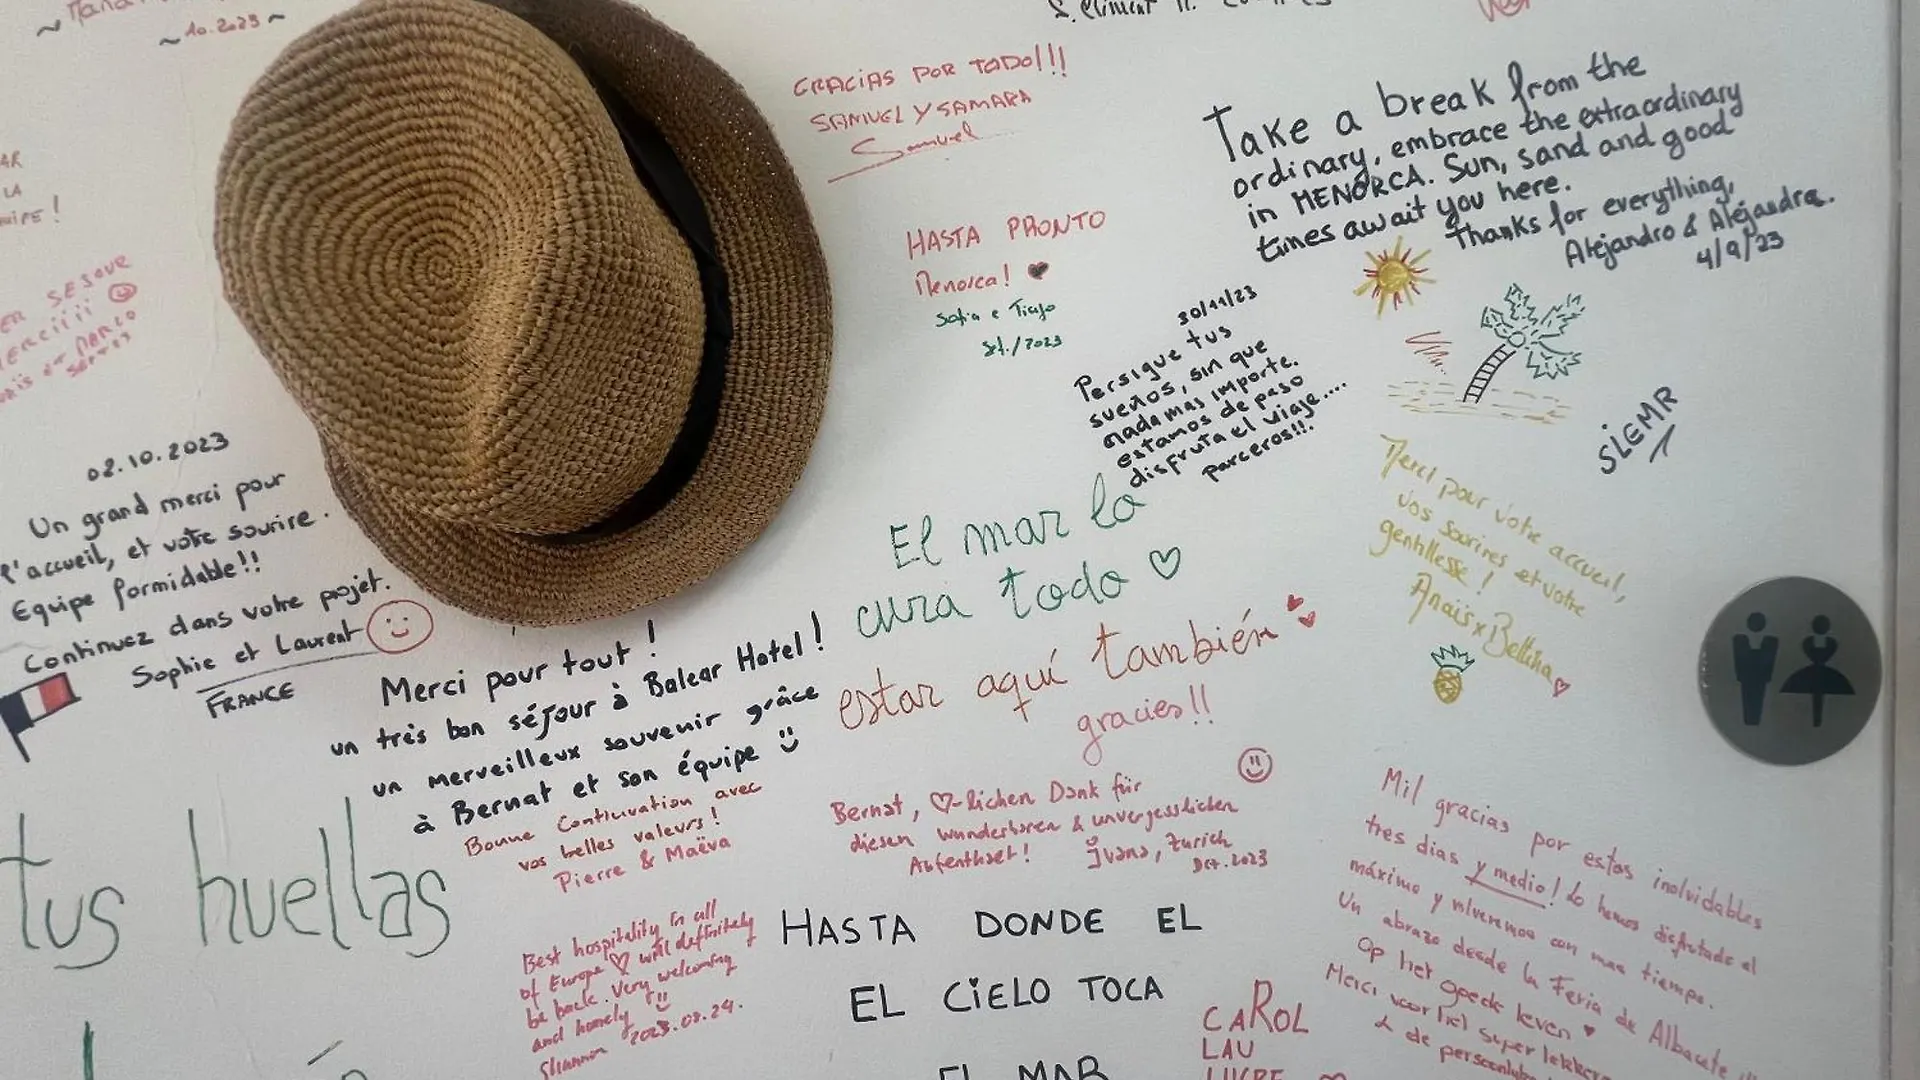 10.2023
GRACIAS POR TODO!!!
SAMUEL Y SAMARA
Samuel
HASTA PRONTO
Menorca!
Sofia e Tiago
Set./2023
Take a break from the
ordinary, embrace the extraordinary
in MENORCA. Sun, sand and good
times await you here.
Thanks for everything,
Alejandro & Alejandra.
4/9/23
30/11/23
Persigue tus
sueños, sin que
nada mas importe.
estamos de paso
disfruta el viaje....
parceros!!!.
SIEMR
Merci pour votre accueil,
vos sourires et votre
gentillesse !
Anaïs x Bettina
LA
02.10.2023
Un grand merci pour
l'accueil, et votre sourire.
Equipe formidable!!
Continuez dans votre projet.
Sophie et Laurent
FRANCE
Merci pour tout !
un très bon séjour à Balear Hotel !
un merveilleux souvenir grâce
à Bernat et son équipe
Bonne Continuation avec
vos belles valeurs !
Pierre & Maëva
El mar lo
cura todo
estar aquí también
gracies!!
Bernat, ♡-lichen Dank für
diesen wunderbaren & unvergesslichen
Aufenthalt!
Ivana, Zürich
Oct. 2023
tus huellas
Best hospitality in all
of Europe ♡ will definitely
be back. Very welcoming
and homely
Shannon 2023.08.24.
HASTA DONDE EL
EL CIELO TOCA
EL MAR
CAROL
LAU
Mil gracias por estos inolvidables
tres dias y medio! Lo hemos disfrutado al
máximo y volveremos con mas tiempo.
Un abrazo desde la Feria de Albacete
Op het goede leven
Merci voor het super lekkere
& de